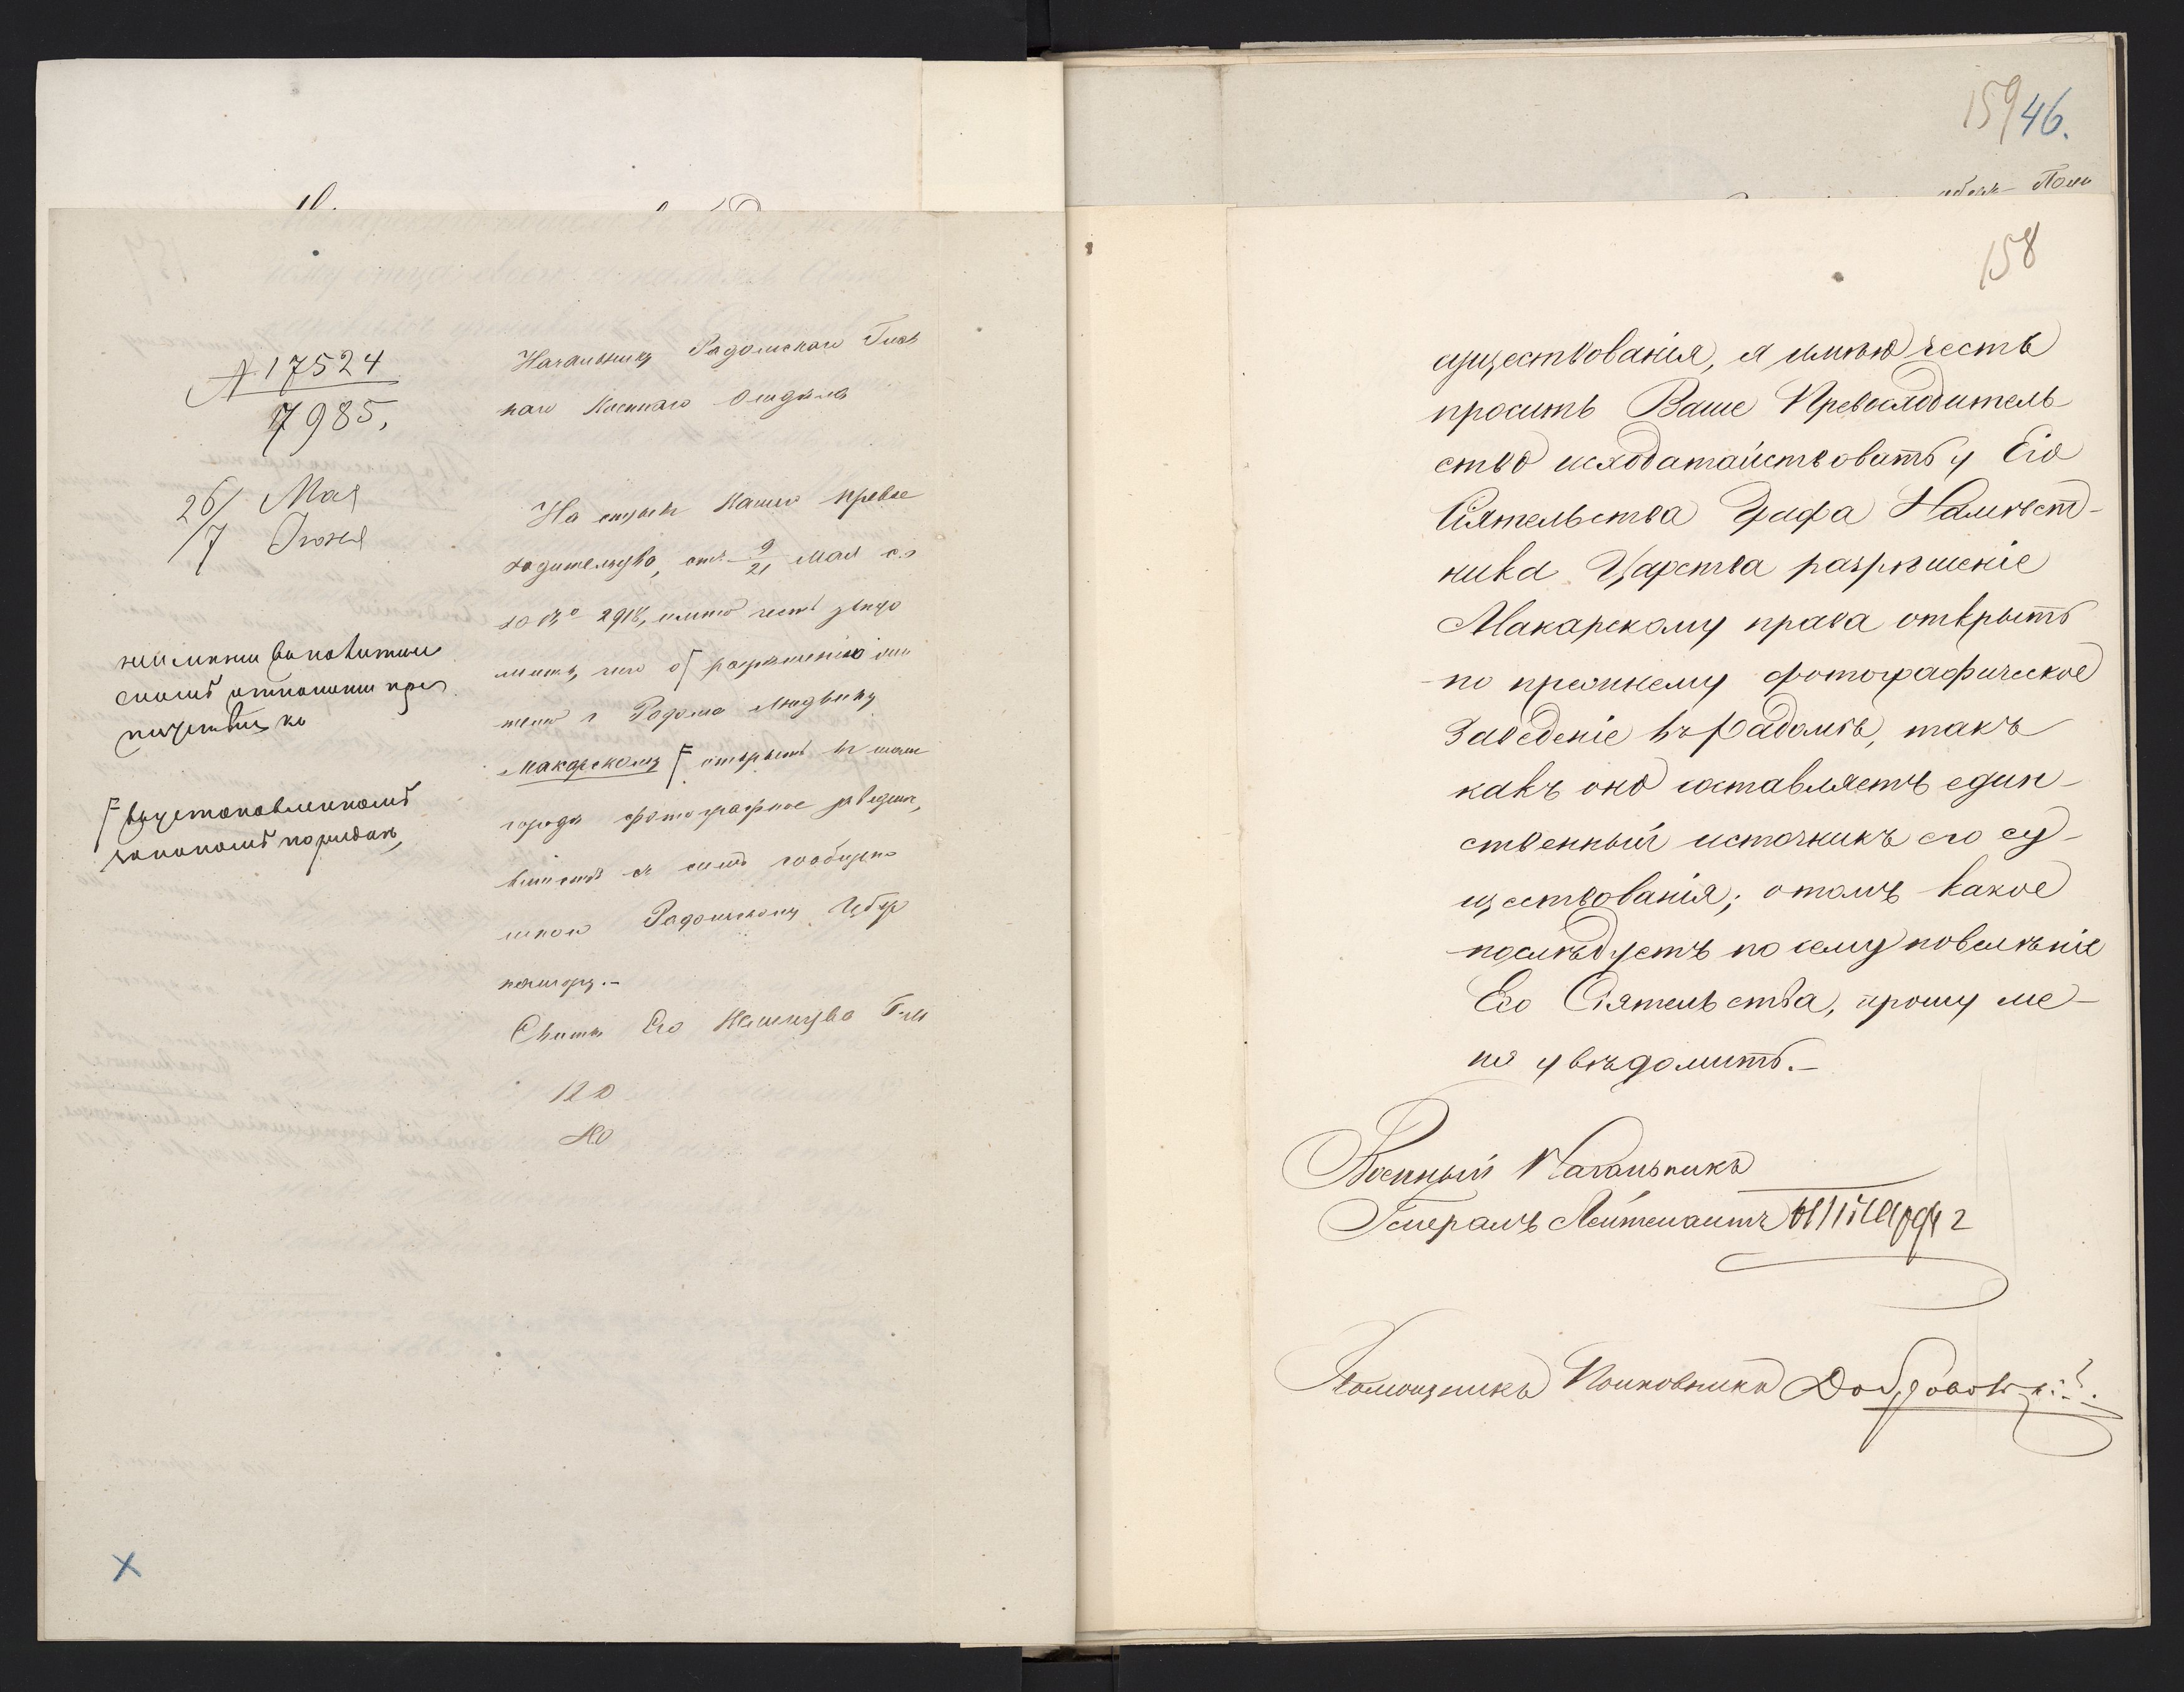 № 17524
17985.
26/7 Мая
Іюня
Начальнику Радомскаго Глав
наго Военнаго Отдѣла
На отзывъ Вашего Превос
ходительства, отъ 9/21 Мая с.г.
за № 2918, имѣю честь увѣдо
мить, что
г. Радома Людвику
Макарскому открыть въ томъ
городѣ фотографное заведеніе,
вмѣстѣ съ симъ сообщено
Радомскому Губер
натору.-
Свиты Его Величества Г-М
установленномъ
закономъ порядкѣ
159 46.
158
ществованія, я имѣю честь
просить Ваше Превосходитель
ство исходатайствовать у Его
Сіятельства Графа Намѣст-
ника Царства разрѣшеніе
Макарскому права открыть
по прежнему фотографическое
заведеніе въ Радомѣ, такъ
какъ оно составляетъ един-
ственный источникъ его су-
ществованія; о томъ какое
послѣдуетъ по сему повелѣніе
Его Сіятельства, прошу ме-
ня увѣдомить.-
Военный Начальникъ
Генералъ Лейтенантъ
Помощникъ Полковникъ Добровольскій.